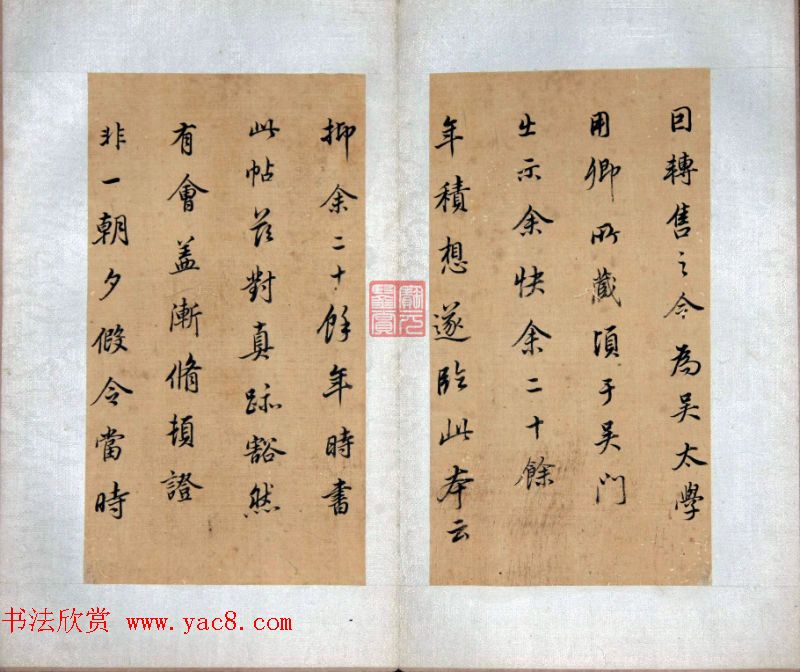 回轉售之今為吳太學
用卿所藏頃于吳門
出示余快余二十餘
年積想遂臨此本云
抑余二十餘年時書
此帖茲對真跡豁然
有會蓋漸脩頓證
非一朝夕假令當時
書法欣赏 www.yac8.com